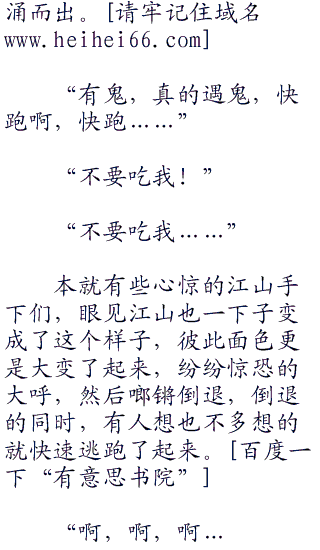 涌而出。[请牢记住域名
www.heihei66.com]
“有鬼，真的遇鬼，快
跑啊，快跑……”
“不要吃我！”
“不要吃我……”
本就有些心惊的江山手
下们，眼见江山也一下子变
成了这个样子，彼此面色更
是大变了起来，纷纷惊恐的
大呼，然后啷锵倒退，倒退
的同时，有人想也不多想的
就快速逃跑了起来。[百度一
下“有意思书院”]
“啊，啊，啊…